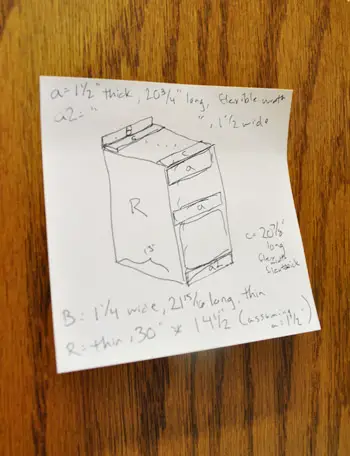 a = 1½" thick, 20¾" long, flexible width
a2 = " ", 1½ wide
B
c
a
R
a
15
a2
c = 20⅞"
long
flex
width
B: 1¼ wide, 21 15/16 long, thin
R: thin, 30" x 14½ (assuming
a = 1½")